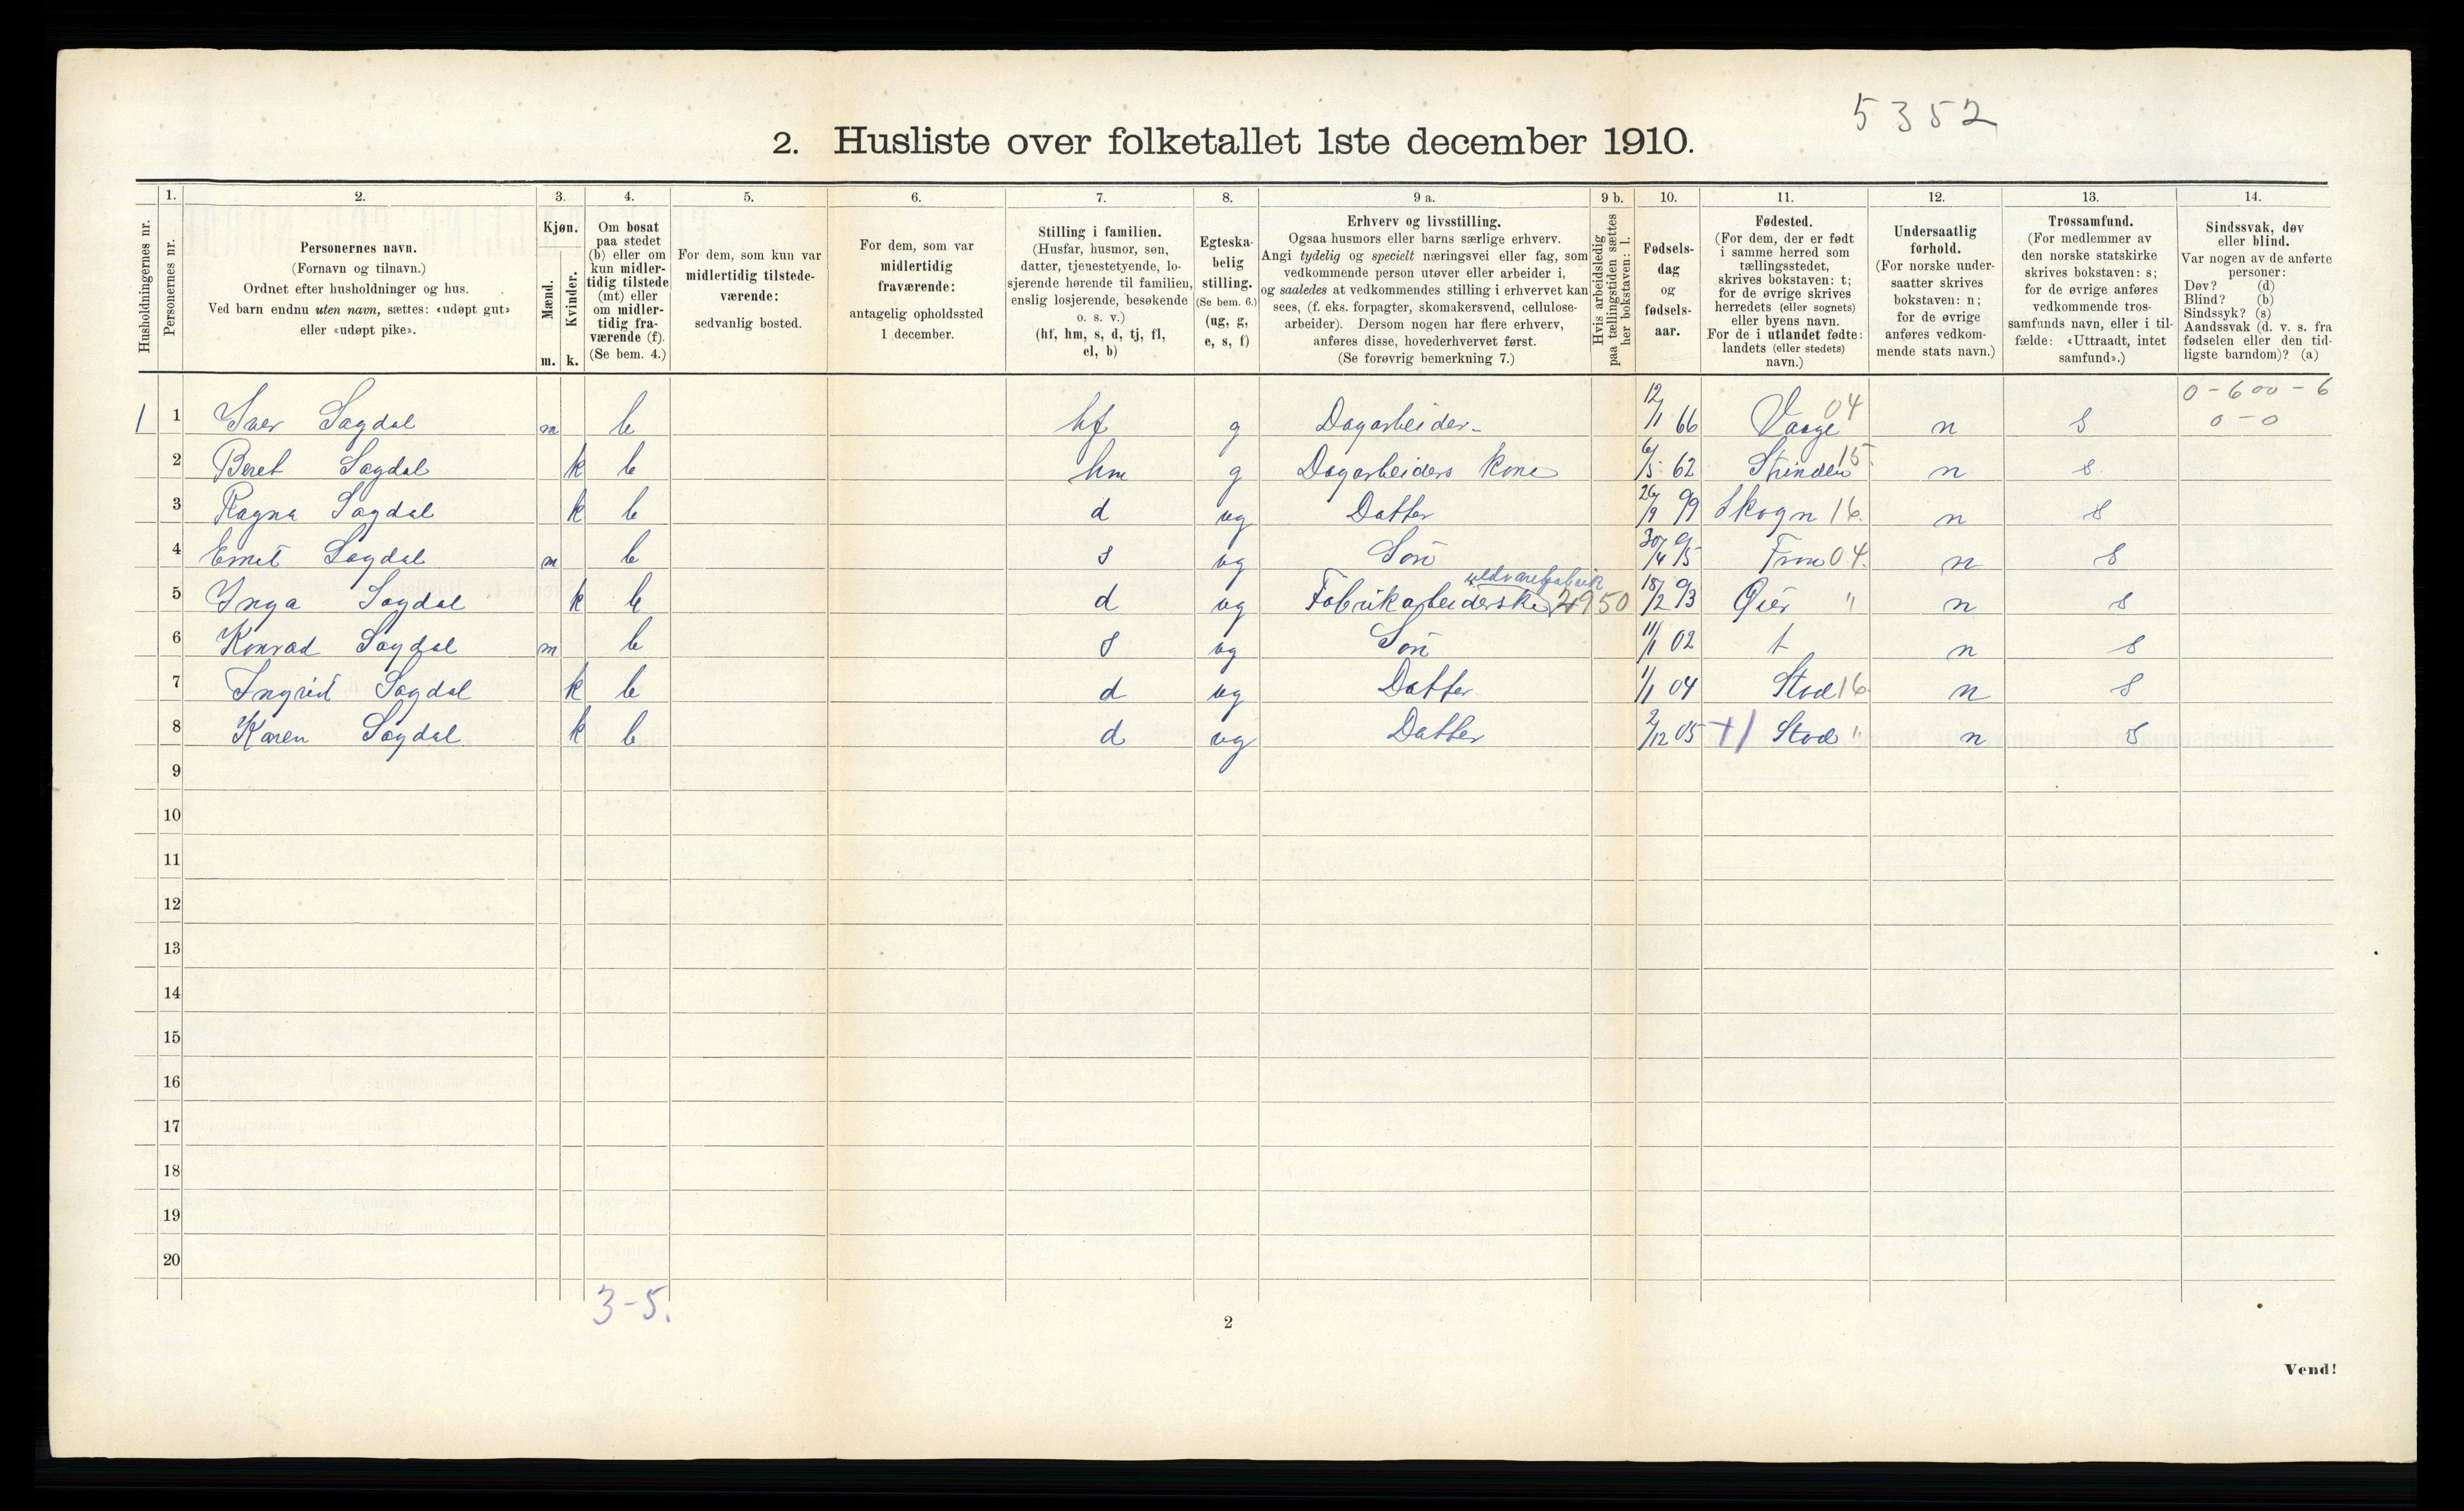 5352
2. Husliste over folketallet 1ste december 1910.
Husholdningernes nr.
1. Personernes nr.
2. Personernes navn.
(Fornavn og tilnavn.)
Ordnet efter husholdninger og hus.
Ved barn endnu uten navn, sættes: «udøpt gut»
eller «udøpt pike».
3. Kjøn.
Mænd. m.
Kvinder. k.
4. Om bosat
paa stedet
(b) eller om
kun midler-
tidig tilstede
(mt) eller
om midler-
tidig fra-
værende (f).
(Se bem. 4.)
5. For dem, som kun var
midlertidig tilstede-
værende:
sedvanlig bosted.
6. For dem, som var
midlertidig
fraværende:
antagelig opholdssted
1 december.
7. Stilling i familien.
(Husfar, husmor, søn,
datter, tjenestetyende, lo-
sjerende hørende til familien,
enslig losjerende, besøkende
o. s. v.)
(hf, hm, s, d, tj, fl,
el, b)
8. Egteska-
belig
stilling.
(Se bem. 6.)
(ug, g,
e, s, f)
9 a. Erhverv og livsstilling.
Ogsaa husmors eller barns særlige erhverv.
Angi tydelig og specielt næringsvei eller fag, som
vedkommende person utøver eller arbeider i,
og saaledes at vedkommendes stilling i erhvervet kan
sees, (f. eks. forpagter, skomakersvend, cellulose-
arbeider). Dersom nogen har flere erhverv,
anføres disse, hovederhvervet først.
(Se forøvrig bemerkning 7.)
9 b. Hvis arbeidsledig
paa tællingstiden sættes
her bokstaven: l.
10. Fødsels-
dag
og
fødsels-
aar.
11. Fødested.
(For dem, der er født
i samme herred som
tællingsstedet,
skrives bokstaven: t;
for de øvrige skrives
herredets (eller sognets)
eller byens navn.
For de i utlandet fødte:
landets (eller stedets)
navn.)
12. Undersaatlig
forhold.
(For norske under-
saatter skrives
bokstaven: n;
for de øvrige
anføres vedkom-
mende stats navn.)
13. Trossamfund.
(For medlemmer av
den norske statskirke
skrives bokstaven: s;
for de øvrige anføres
vedkommende tros-
samfunds navn, eller i til-
fælde: «Uttraadt, intet
samfund».)
14. Sindssvak, døv
eller blind.
Var nogen av de anførte
personer:
Døv? (d)
Blind? (b)
Sindssyk? (s)
Aandssvak (d. v. s. fra
fødselen eller den tid-
ligste barndom)? (a)
0-600-6
1 1 Iver Sagdal m b hf g Dagarbeider- 12/11 66 Vaage 04 n s 0-0
2 Beret Sagdal k b hm g Dagarbeiders kone 6/5 62 Strinden 15 n s
3 Ragna Sagdal k b d ug Datter 26/9 99 Skogn 16. n s
4 Emil Sagdal m b s ug Søn 30/4 95 Fron 04. n s
5 Inga Sagdal k b d ug Fabrikarbeiderske 4950 18/2 93 Øier " n s
6 Konrad Sagdal m b s ug Søn 11/1 02 t n s
7 Ingrid Sagdal k b d ug Datter 1/1 04 Stod 16 n s
8 Karen Sagdal k b d ug Datter 2/12 05 Stod " n s
9
10
11
12
13
14
15
16
17
18
19
20
3-5.
2
Vend!